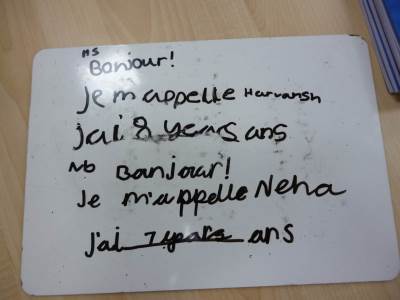 HS
Bonjour!
Je m'appelle Harvansh
j'ai 8 years ans
NB
Bonjour!
Je m'appelle Neha
j'ai 7 years ans